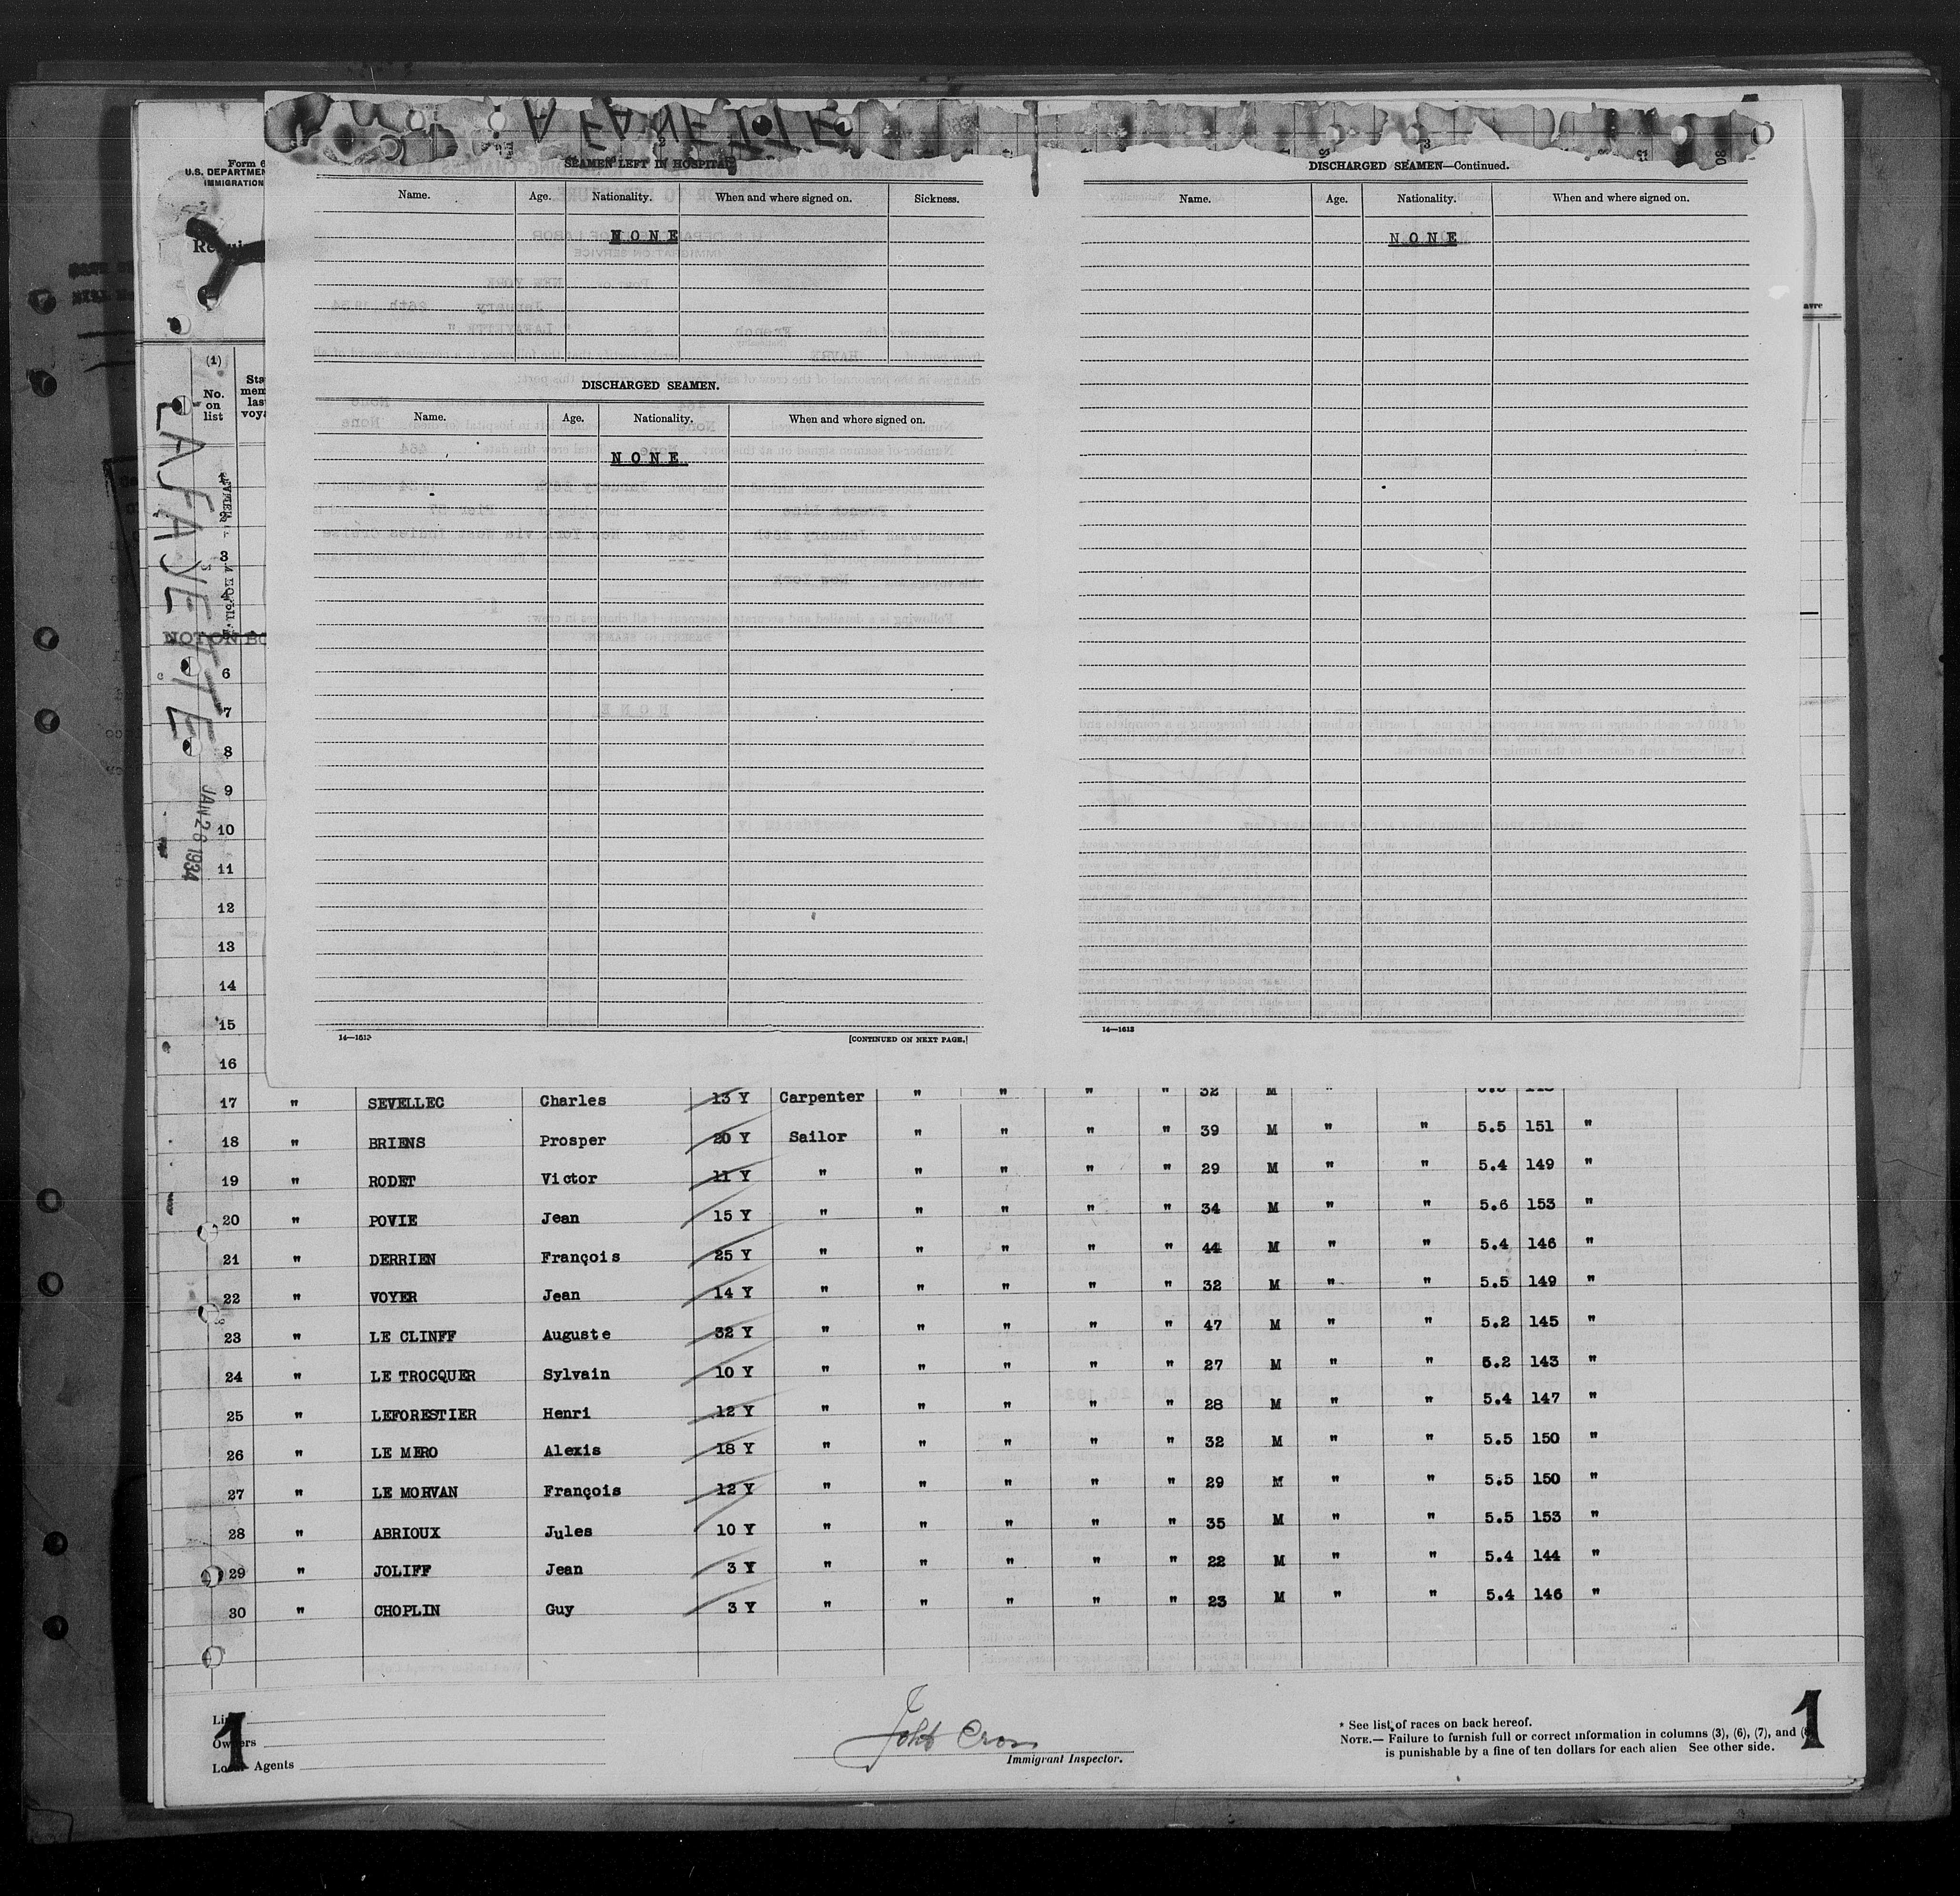 LAFAYETTE
SEAMEN LEFT IN HOSPITAL
Name. Age. Nationality. When and where signed on. Sickness.
NONE
DISCHARGED SEAMEN.
Name. Age. Nationality. When and where signed on.
NONE
14—1613 [CONTINUED ON NEXT PAGE.]
DISCHARGED SEAMEN—Continued.
Name. Age. Nationality. When and where signed on.
NONE
14—1613
Form 6
U.S. DEPARTMEN
IMMIGRATION
(1)
No. on list
LAFAYETTE
JAN 26 1934
NOT ON BO
3
6
7
8
9
10
11
12
13
14
15
16
17 " SEVELLEC Charles 13 Y Carpenter " " " " 32 M "
18 " BRIENS Prosper 20 Y Sailor " " " " 39 M " " 5.5 151 "
19 " RODET Victor 11 Y " " " " " 29 M " " 5.4 149 "
20 " POVIE Jean 15 Y " " " " " 34 M " " 5.6 153 "
21 " DERRIEN François 25 Y " " " " " 44 M " " 5.4 146 "
22 " VOYER Jean 14 Y " " " " " 32 M " " 5.5 149 "
23 " LE CLINFF Auguste 32 Y " " " " " 47 M " " 5.2 145 "
24 " LE TROCQUER Sylvain 10 Y " " " " " 27 M " " 5.2 143 "
25 " LEFORESTIER Henri 12 Y " " " " " 28 M " " 5.4 147 "
26 " LE MERO Alexis 18 Y " " " " " 32 M " " 5.5 150 "
27 " LE MORVAN François 12 Y " " " " " 29 M " " 5.5 150 "
28 " ABRIOUX Jules 10 Y " " " " " 35 M " " 5.5 153 "
29 " JOLIFF Jean 3 Y " " " " " 22 M " " 5.4 144 "
30 " CHOPLIN Guy 3 Y " " " " " 23 M " " 5.4 146 "
1
Owners
Local Agents
John Cross
Immigrant Inspector.
* See list of races on back hereof.
NOTE.— Failure to furnish full or correct information in columns (3), (6), (7), and (8)
is punishable by a fine of ten dollars for each alien See other side.
1